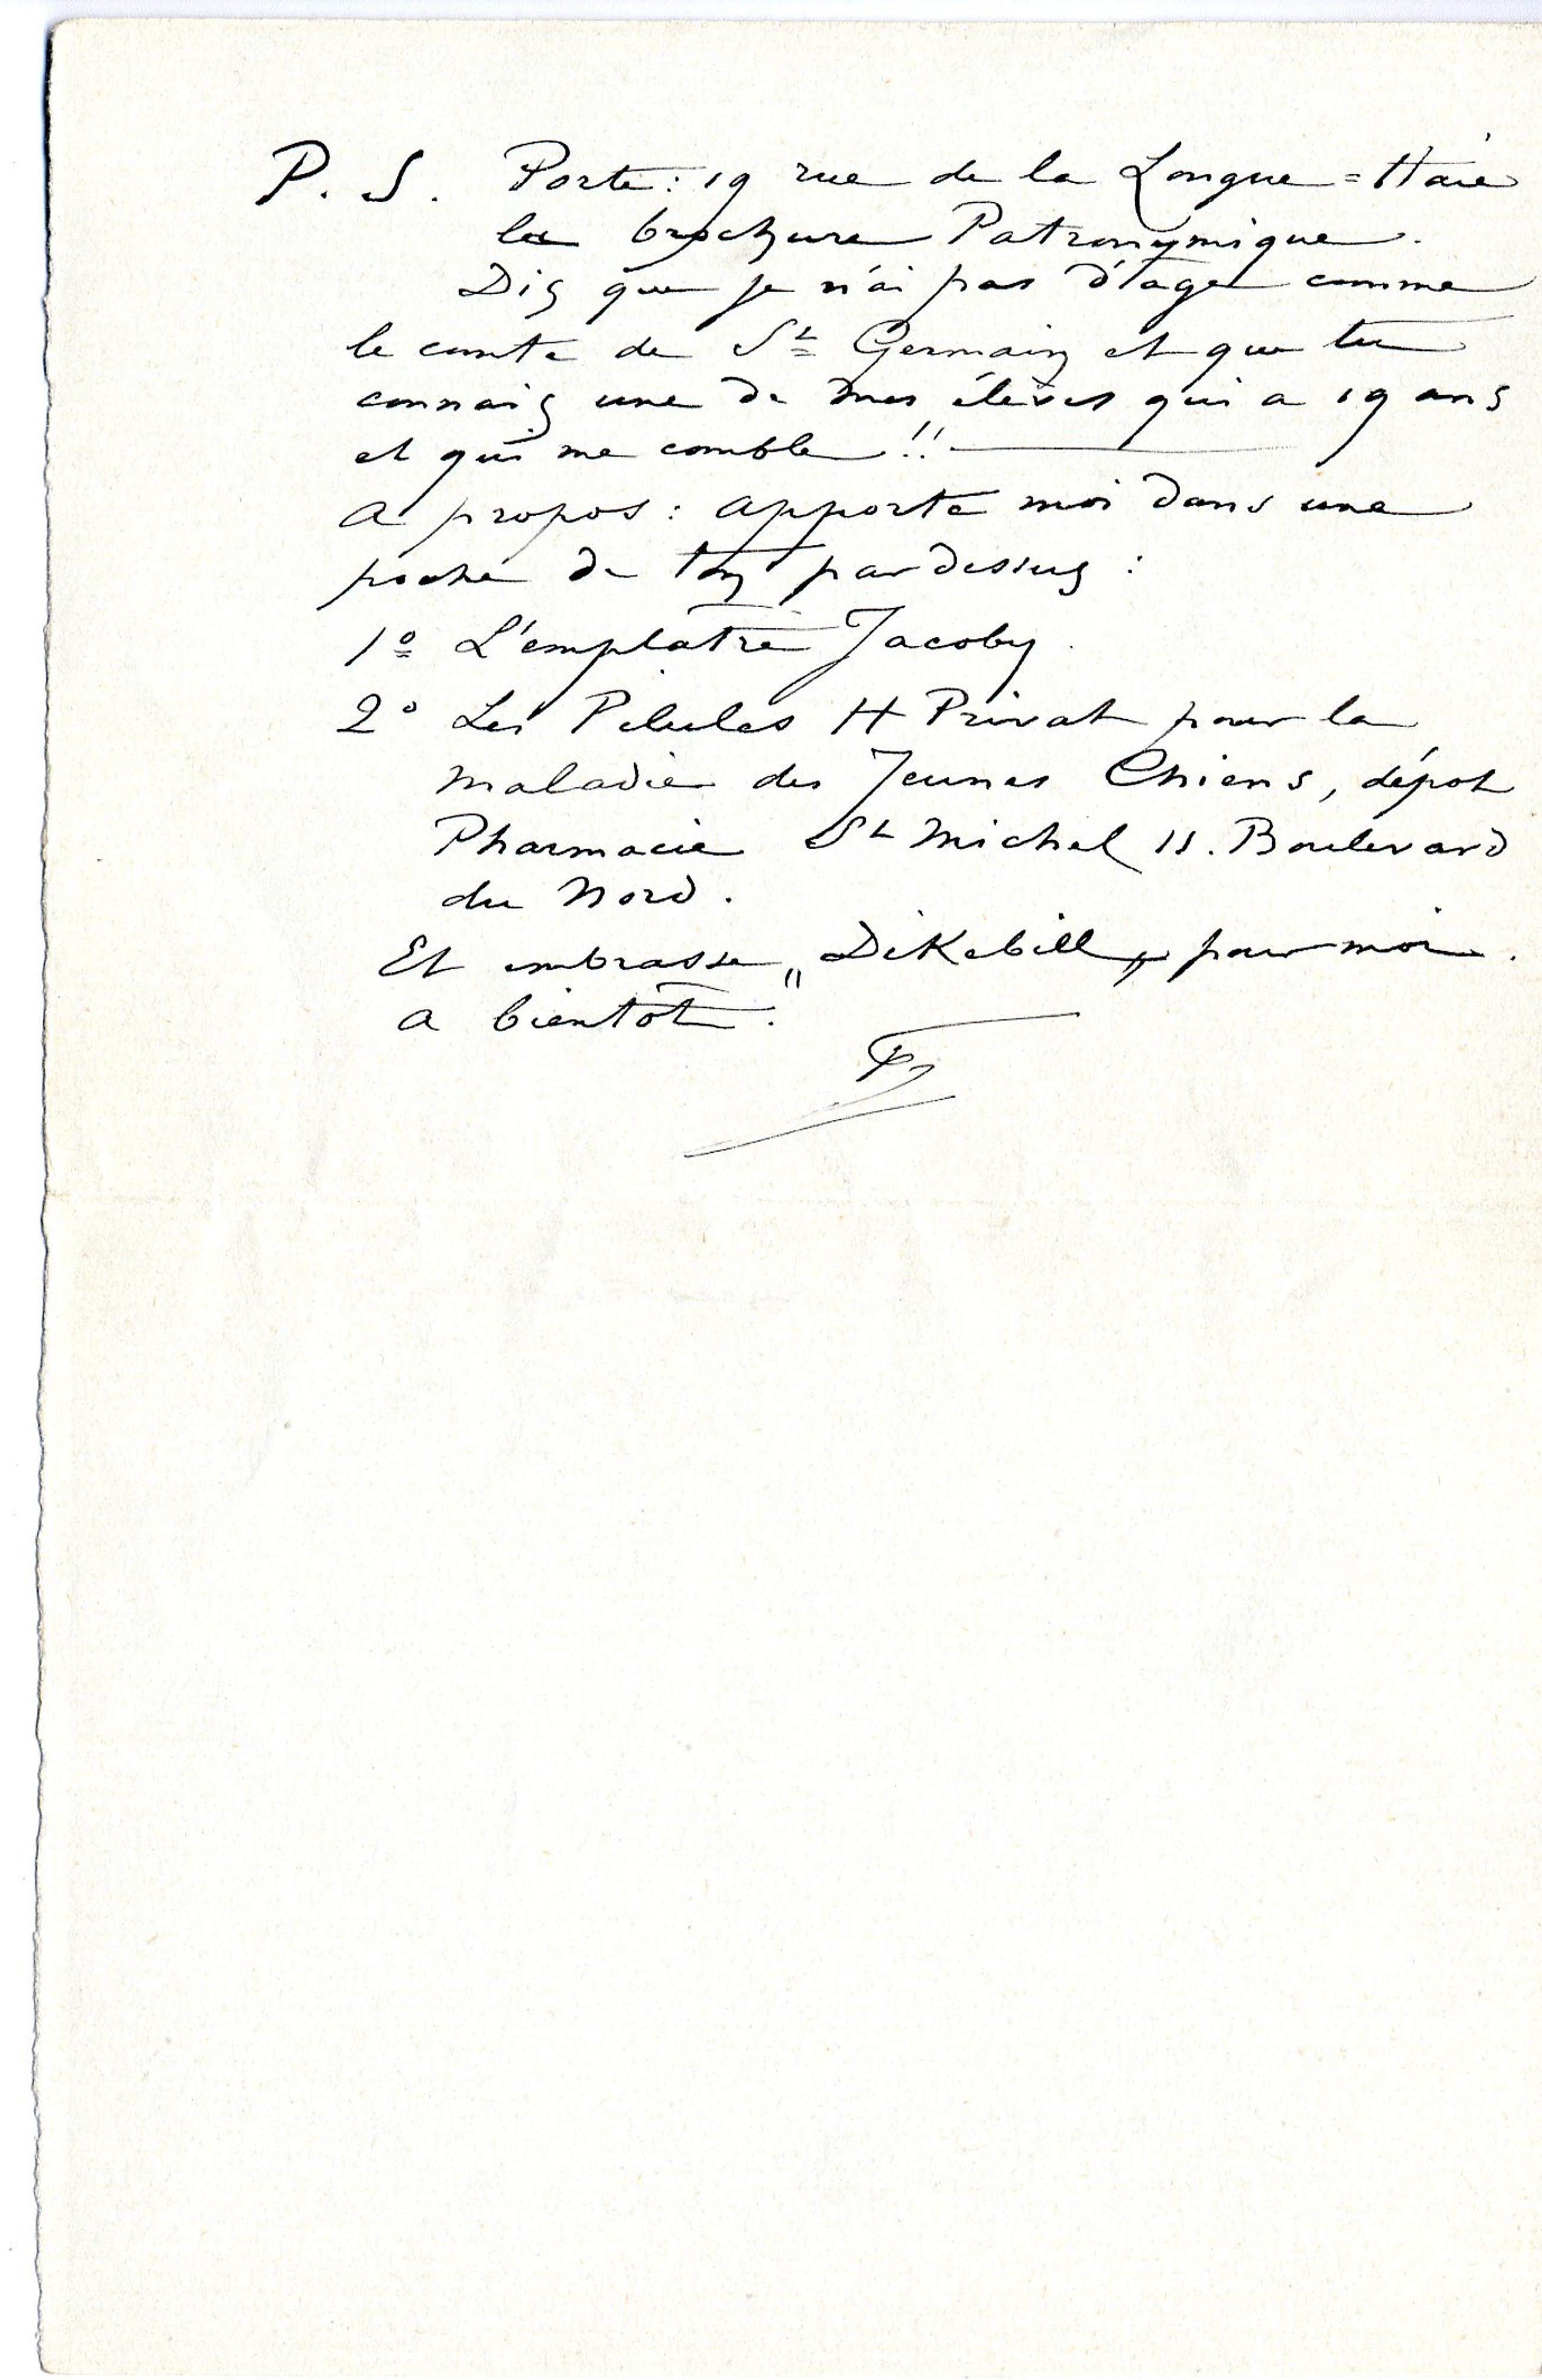 P. S. Porte : 19 rue de la Longue = Haie
la brochure Patronymique.
Dis que je n'ai pas d'âge comme
le comte de St Germain et que tu
connais une de mes élèves qui a 19 ans
et qui me comble !!
A propos : apporte moi dans une
poche de ton pardessus :
1º L'emplatre Jacoby.
2º Les Pilules H Privat pour la
maladie des Jeunes Chiens, dépot
Pharmacie St Michel 11. Boulevard
du Nord.
Et embrasse „Dikebill„ pour moi.
a bientôt.